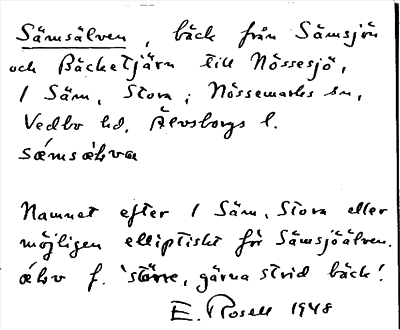 Sämsälven, bäck från Sämsjön
och Bäcketjärn till Nössesjö,
/ Säm, Stora; Nössemarks sn,
Vedbo hd, Älvsborgs l.
sæ̀msæ̀lva
Namnet efter / Säm, Stora eller
möjligen elliptiskt för Sämsjöälven.
ælv f. 'större, gärna strid bäck'.
E. Rosell 1948